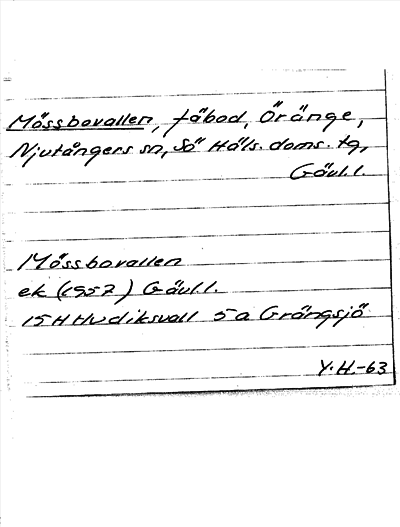 Mössbovallen, fäbod, Öränge,
Njutångers sn, Sö Häls. doms. tg,
Gävl.l.
Mössbovallen
ek (1957) Gävl.l.
15H Hudiksvall 5a Grängsjö
Y.H.-63